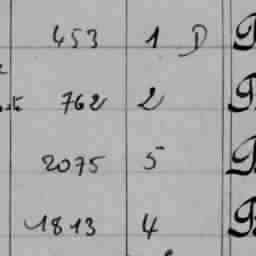 453 1 D
762 2
2075 5
1813 4